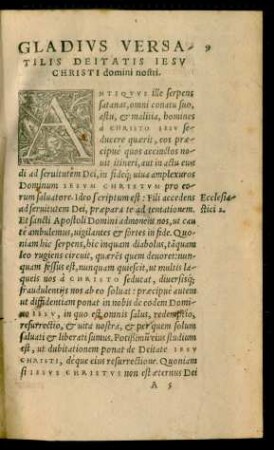 GLADIVS VERSA- 9
TILIS DEITATIS IESV
CHRISTI domini nostri.
ANTIQVVS ille serpens
satanas, omni conatu suo,
astu, & malitia, homines
à CHRISTO IESV se-
ducere quærit, eos præ-
cipuè quos accinctos no-
uit itineri, aut in actu eun
di ad seruitutem Dei, in fideq; uiua amplexuros
Dominum IESVM CHRISTVM pro eo-
rum saluatore. Ideo scriptum est: Fili accedens Ecclesia-
ad seruitutem Dei, præpara te ad tentationem. stici 2.
Et sancti Apostoli Domini admonent nos, ut cau
tè ambulemus, uigilantes & fortes in fide. Quo-
niam hic serpens, hic inquam diabolus, tāquam
leo rugiens circuit, quærēs quem deuoret: nun-
quam fessus est, nunquam quiescit, ut multis la-
queis nos à CHRISTO seducat, diuersisq;
fraudulentijs nos ab eo soluat: præcipuè autem
ut diffidentiam ponat in nobis de eodem Domi-
no IESV, in quo est omnis salus, redemptio,
resurrectio, & uita nostra, & per quem solum
saluati & liberati sumus. Potißimū eius studium
est, ut dubitationem ponat de Deitate IESV
CHRISTI, déque eius resurrectione. Quoniam
si IESVS CHRISTVS non est æternus Dei
A 5